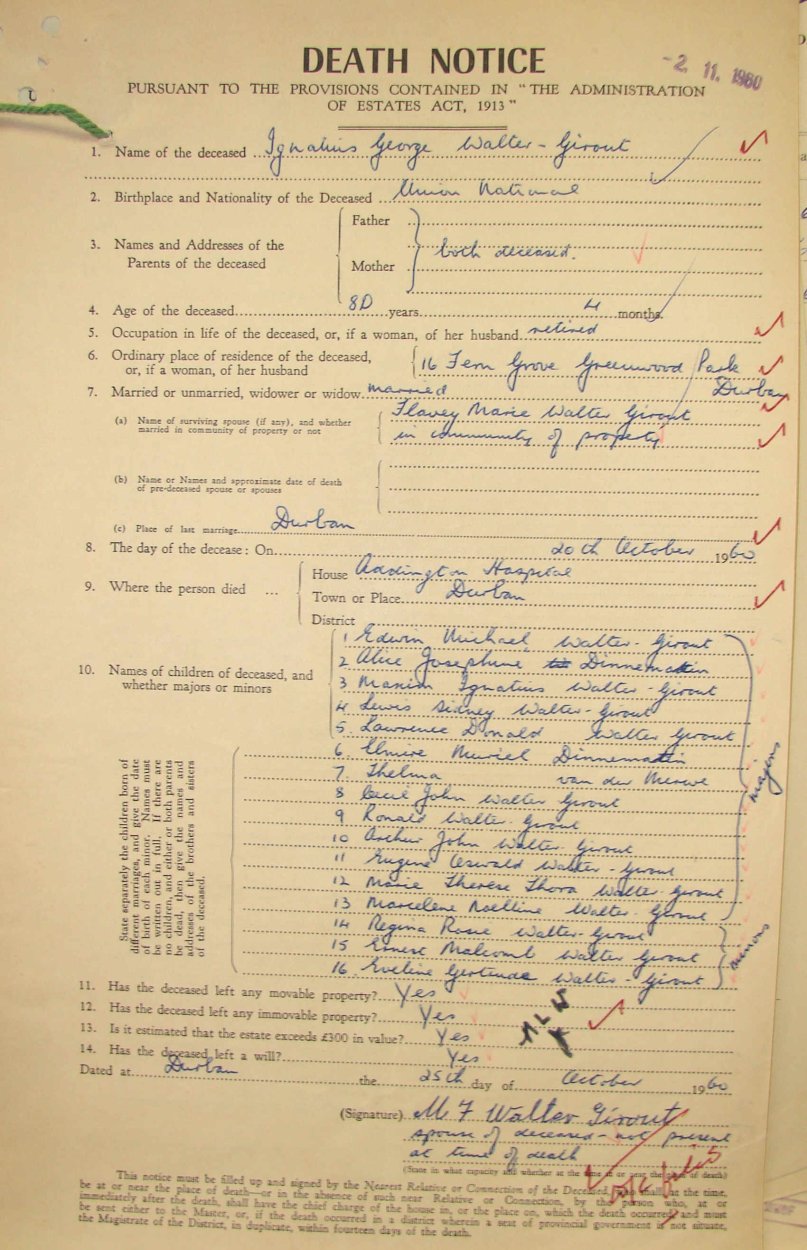 DEATH NOTICE
-2. 11. 1960
PURSUANT TO THE PROVISIONS CONTAINED IN "THE ADMINISTRATION
OF ESTATES ACT, 1913"
1. Name of the deceased Ignatius George Walter-Girout
2. Birthplace and Nationality of the Deceased Union National
3. Names and Addresses of the Parents of the deceased
Father
Mother
both deceased.
4. Age of the deceased 80 years 4 months
5. Occupation in life of the deceased, or, if a woman, of her husband retired
6. Ordinary place of residence of the deceased, or, if a woman, of her husband
16 Fern Grove Greenwood Park
Durban
7. Married or unmarried, widower or widow married
(a) Name of surviving spouse (if any), and whether married in community of property or not
Flavey Marie Walter Girout
in community of property
(b) Name or Names and approximate date of death of pre-deceased spouse or spouses
(c) Place of last marriage Durban
8. The day of the decease: On 20th October 1960
9. Where the person died ...
House Addington Hospital
Town or Place Durban
District
10. Names of children of deceased, and whether majors or minors
1 Edwin Michael Walter-Girout
2 Alice Josephine Dinnematin
3 Maxim Ignatius Walter-Girout
4 Lewis Sidney Walter-Girout
5. Lawrence Donald Walter Girout
6. Elmire Muriel Dinnematin
7. Thelma van der Merwe
8 Cecil John Walter Girout
9 Ronald Walter-Girout
10 Arthur John Walter-Girout
11 Eugene Oswald Walter-Girout
12 Marie Therese Thora Walter-Girout
13 Marcelene Noelline Walter-Girout
majors
14 Regina Rosie Walter-Girout
15 Ernest Malcomb Walter Girout
16 Eveline Gertrude Walter-Girout
minors
State separately the children born of
different marriages, and give the date
of birth of each minor. Names must
be written out in full. If there are
no children, and either or both parents
be dead, then give the names and
addresses of the brothers and sisters
of the deceased.
11. Has the deceased left any movable property? Yes
12. Has the deceased left any immovable property? Yes
13. Is it estimated that the estate exceeds £300 in value? Yes
14. Has the deceased left a will? Yes
Dated at Durban the 25th day of October 1960
(Signature) M F Walter Girout
spouse of deceased - not present
at time of death
(State in what capacity and whether at the time in or near the place of death)
This notice must be filled up and signed by the Nearest Relative or Connection of the Deceased, who shall at the time,
be at or near the place of death—or in the absence of such near Relative or Connection, by the person who, at or
immediately after the death, shall have the chief charge of the house in, or the place on, which the death occurred; and must
be sent either to the Master, or, if the death occurred in a district wherein a seat of provincial government is not situate,
the Magistrate of the District, in duplicate, within fourteen days of the death.